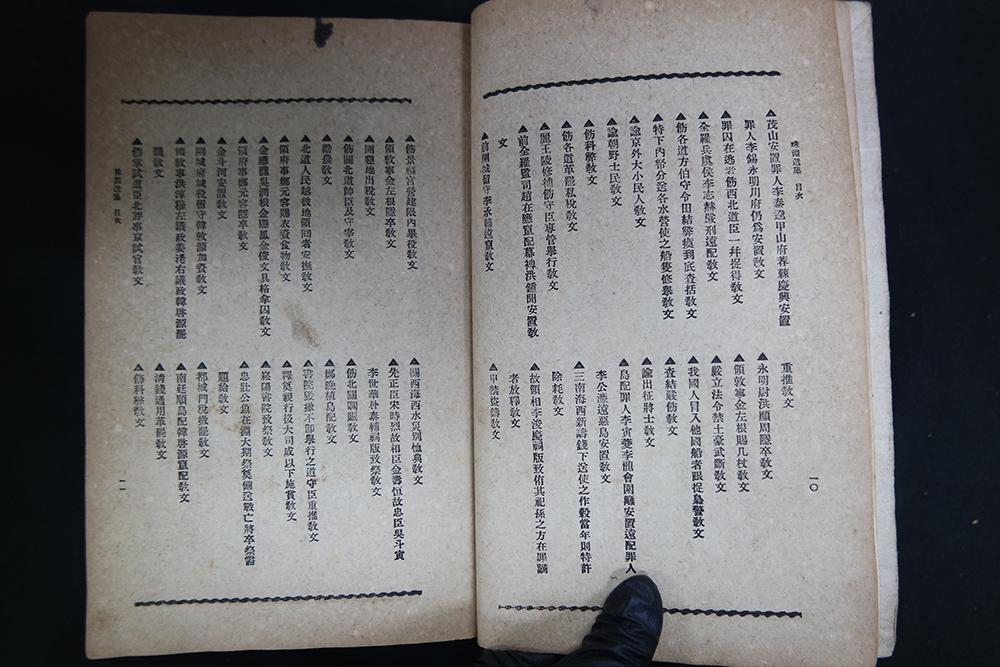 晩圃遺集 目次
一〇
▲茂山安置罪人李泰逸甲山府荐棘慶興安置
罪人李錫永明川府仍爲安置教文
▲罪囚在逃者飭西北道臣一幷捉得教文
▲全羅兵虞侯李志赫嚴刑遠配教文
▲飭各道方伯守令田結弊瘼到底査括教文
▲特下內帑分送各水營使之船隻修擧教文
▲諭京外大小民人教文
▲諭朝野士民教文
▲飭科弊教文
▲飭各道革罷私稅教文
▲麗王陵修補飭守臣專管擧行教文
▲前全羅監司趙在應竄配幕裨洪鍾聞安置教
文
▲前開城留守李承輔遠竄教文
重推教文
▲永明尉洪顯周隱卒教文
▲領敦寧金左根賜几杖教文
▲嚴立法令禁土豪武斷教文
▲我國人冒入他國船者跟捉梟警教文
▲査結嚴飭教文
▲諭出征將士教文
▲島配罪人李寅夔李龍會圍籬安置遠配罪人
李公濂遠惡島安置教文
▲三南海西新鑄錢下送使之作穀當年則特許
除耗教文
▲故領相李浚慶祠版致侑其祀孫之方在罪謫
者放釋教文
▲甲禁盜鑄教文
▲飭景福宮營建限內畢役教文
▲領敦寧金左根隱卒教文
▲閑曠地出稅教文
▲飭關北道帥臣及守宰教文
▲勸農教文
▲北道人民越彼地領回者安撫教文
▲領府事鄭元容賜衣資食物教文
▲金應龍吳潤根金應鳳金俊文具格拿囚教文
▲領府事鄭元容隱卒教文
▲金斗河安置教文
▲開城府城役留守韓敦源加資教文
▲領敦寧洪淳穆左議政姜㳣右議政韓啓源罷
職教文
▲飭掌試道臣北評事京試官教文
▲關西海西水災別恤典教文
▲先正臣宋時烈故相臣金壽恒故忠臣吳斗寅
李世華朴泰輔祠版致祭教文
▲飭北關關賑教文
▲鄭晩植島配教文
▲書院毁撤不卽擧行之道守臣重推教文
▲釋奠親行後大司成以下施賞教文
▲崧陽書院致祭教文
▲忠壯公魚在淵大朞祭奠備送戰亡將卒祭需
題給教文
▲都城門稅撤罷教文
▲南廷順島配韓啓源竄配教文
▲淸錢通用革罷教文
▲飭科弊教文
晩圃遺集 目次
一一